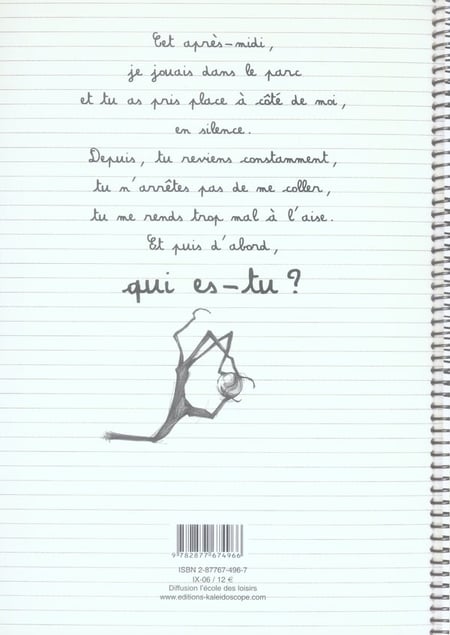 Cet après-midi,
je jouais dans le parc
et tu as pris place à côté de moi,
en silence.
Depuis, tu reviens constamment,
tu n'arrêtes pas de me coller,
tu me rends trop mal à l'aise.
Et puis d'abord,
qui es-tu ?
9 782877 674966
ISBN 2-87767-496-7
IX-06 / 12 €
Diffusion l'école des loisirs
www.editions-kaleidoscope.com